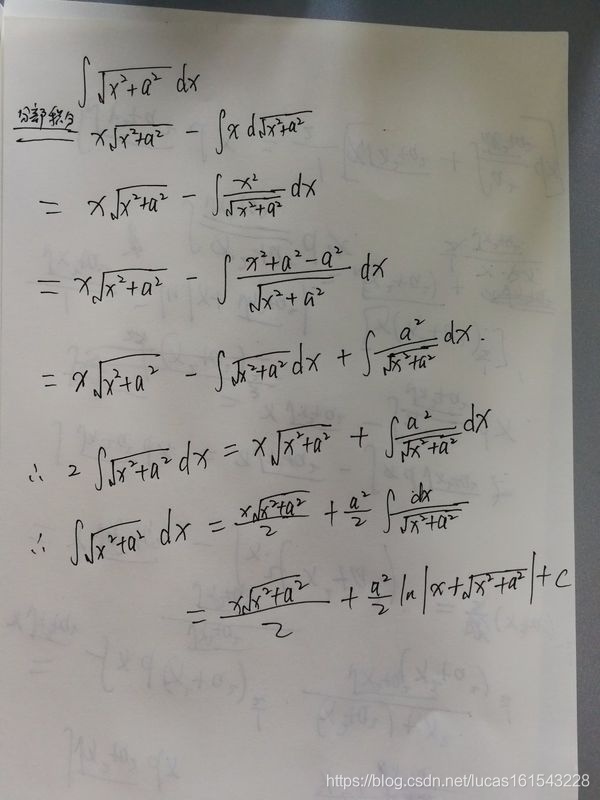 ∫√(x²+a²) dx
分部积分 x√(x²+a²) - ∫x d√(x²+a²)
= x√(x²+a²) - ∫ x²/√(x²+a²) dx
= x√(x²+a²) - ∫ (x²+a²-a²)/√(x²+a²) dx
= x√(x²+a²) - ∫√(x²+a²) dx + ∫ a²/√(x²+a²) dx.
∴ 2∫√(x²+a²) dx = x√(x²+a²) + ∫ a²/√(x²+a²) dx
∴ ∫√(x²+a²) dx = x√(x²+a²)/2 + a²/2 ∫ dx/√(x²+a²)
= x√(x²+a²)/2 + a²/2 ln|x+√(x²+a²)| + C
https://blog.csdn.net/lucas161543228